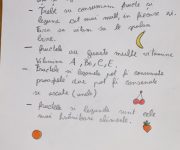 - Trebuie să consumăm fructe și
legume cât mai mult, în fiecare zi.
Fără să uităm să le spălăm
bine.
- fructele au foarte multe vitamine
Vitamine A, B6, C, E.
- Fructele și legumele pot fi consumate
proaspete dar pot fi consumate
și uscate (unele)
- fructele și legumele sunt cele
mai hrănitoare alimente.